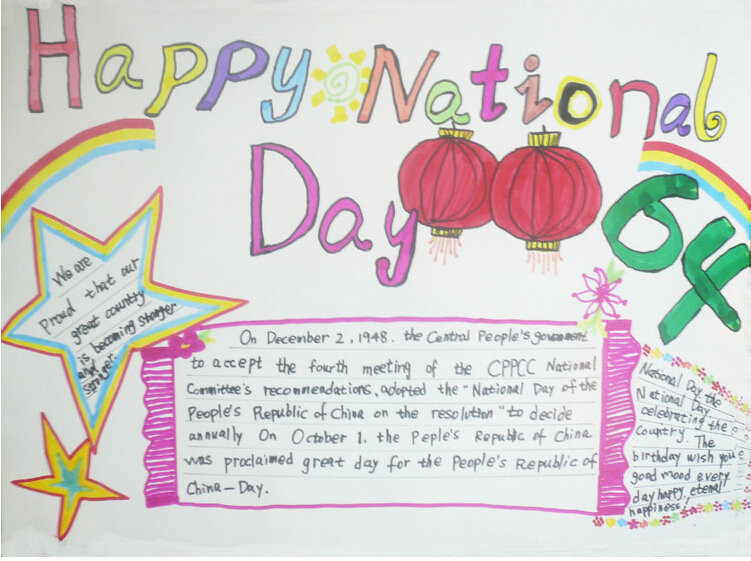 Happy National
Day
64
We are
Proud that our
great country
is becoming stronger
and
stronger.
On December 2, 1948. the Central People's government
to accept the fourth meeting of the CPPCC National
Committee's recommendations, adopted the "National Day of the
People's Republic of China on the resolution" to decide
annually On October 1. the Peple's Republic of China
was proclaimed great day for the People's Republic of
China—Day.
National Day the
National Day
celebrating the
Country. The
birthday wish you
good mood every
day happy, eternal
happiness!